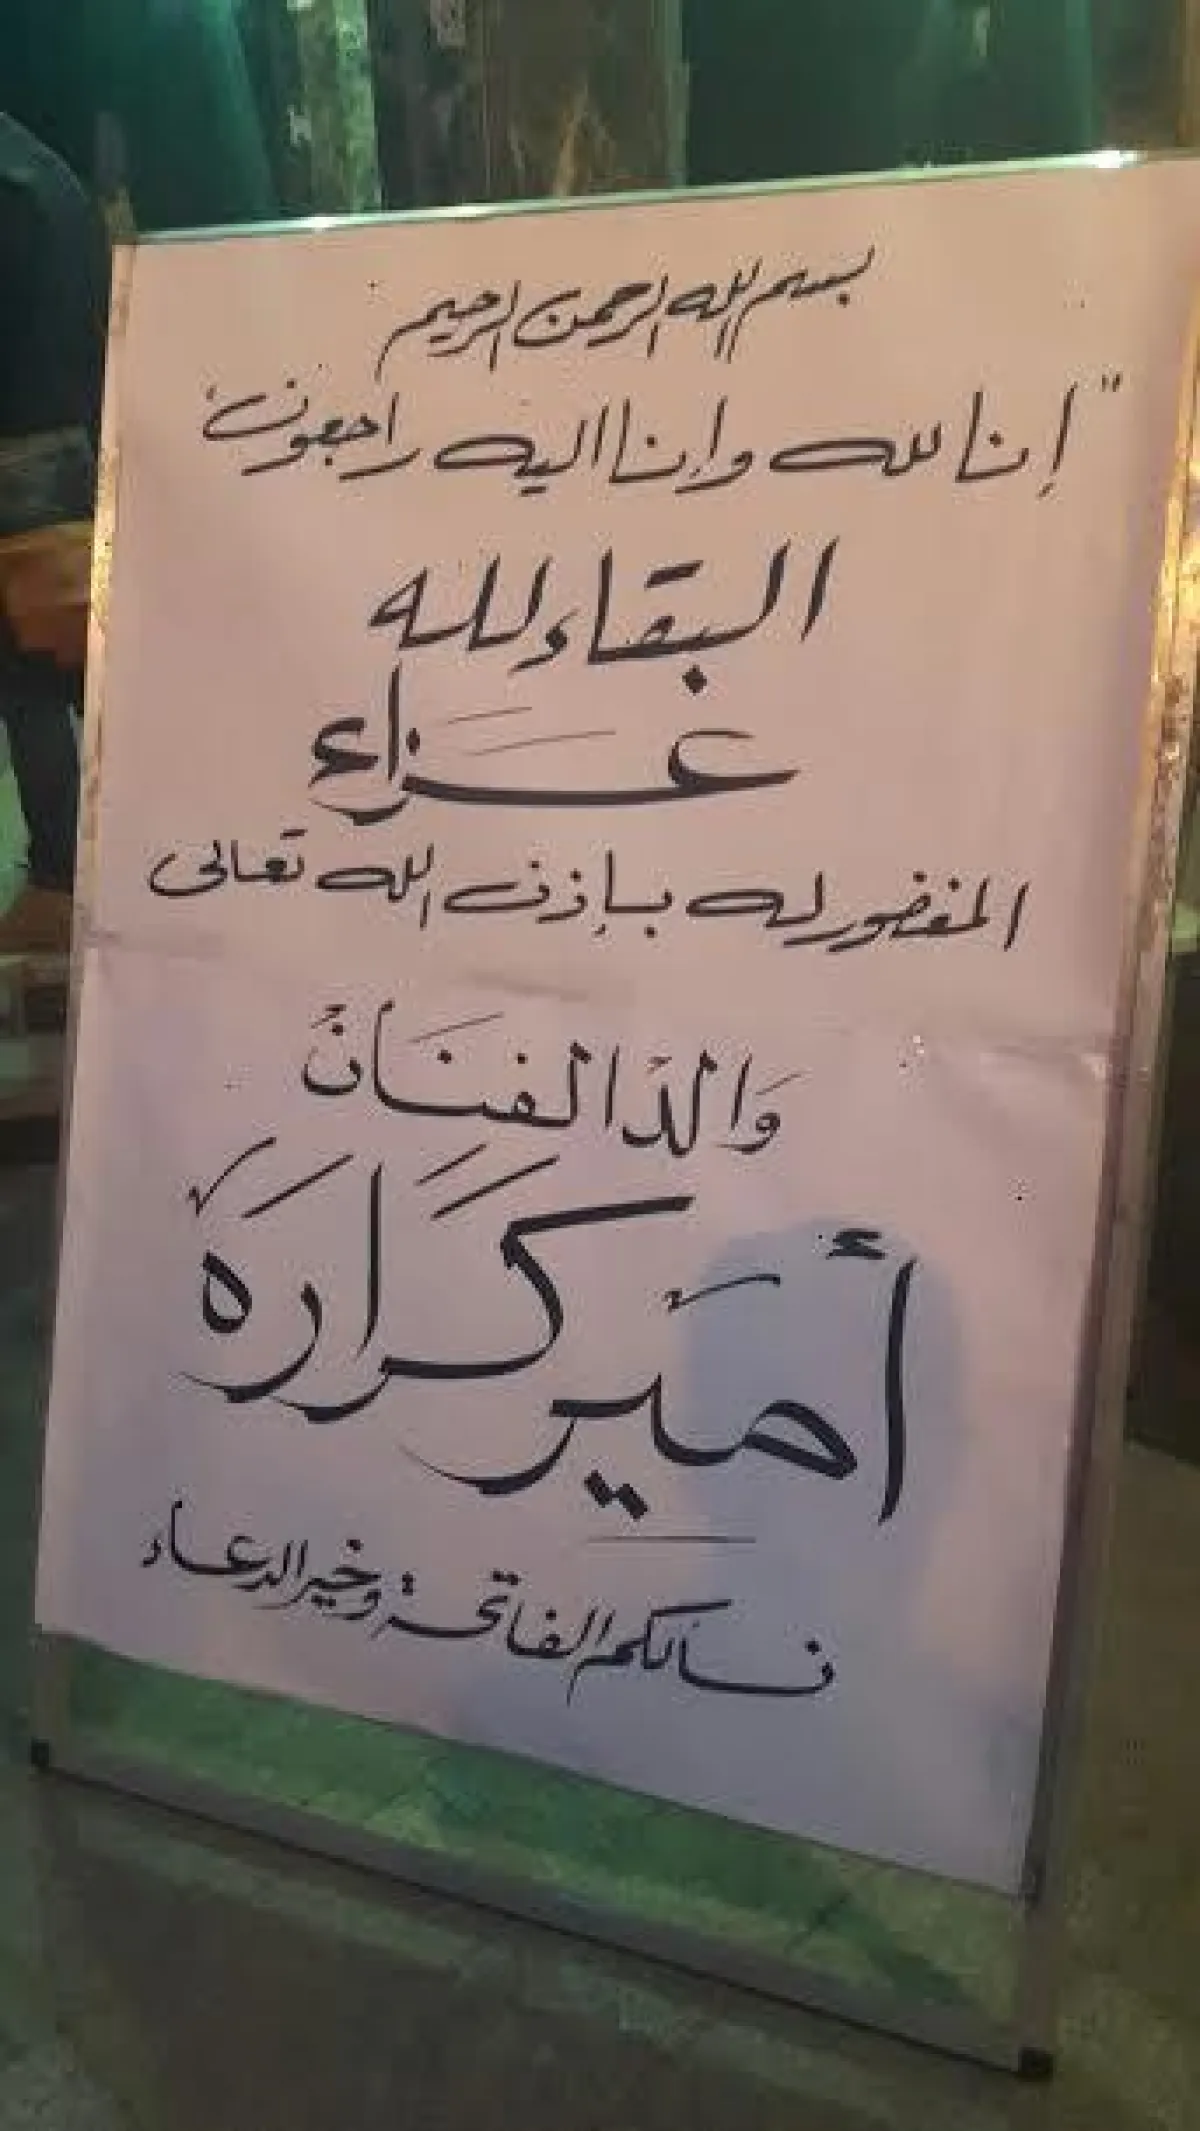 بسم الله الرحمن الرحيم
"إنا لله وإنا اليه راجعون"
البقاء لله
عزاء
المغفور له بإذن الله تعالى
وَالد الفنَان
أمَير كَرَارَه
نسالكم الفاتحة وخير الدعاء